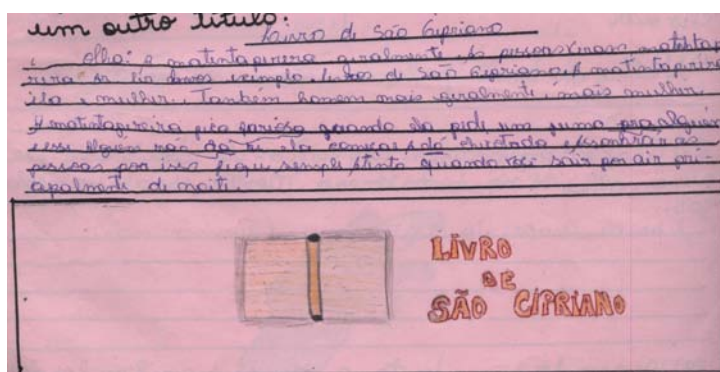 um outro título:
Livro de São Cipriano
olha: a matintapereira geralmente as pessoas viram matinta
rera se lia livros exemplo livros de São Cipriano, A matintaperera
ela é mulher. Também homem mais geralmente, mais mulher.
A matintapereira fica furiosa quando ela pede um fumo pra alguém
esse alguem não da ai ela começa a dá chicotada, assombrar as
pessoas por isso fique sempre atento quando você sair por air pri-
cipalmente de noite.
LIVRO
DE
SÃO CIPRIANO